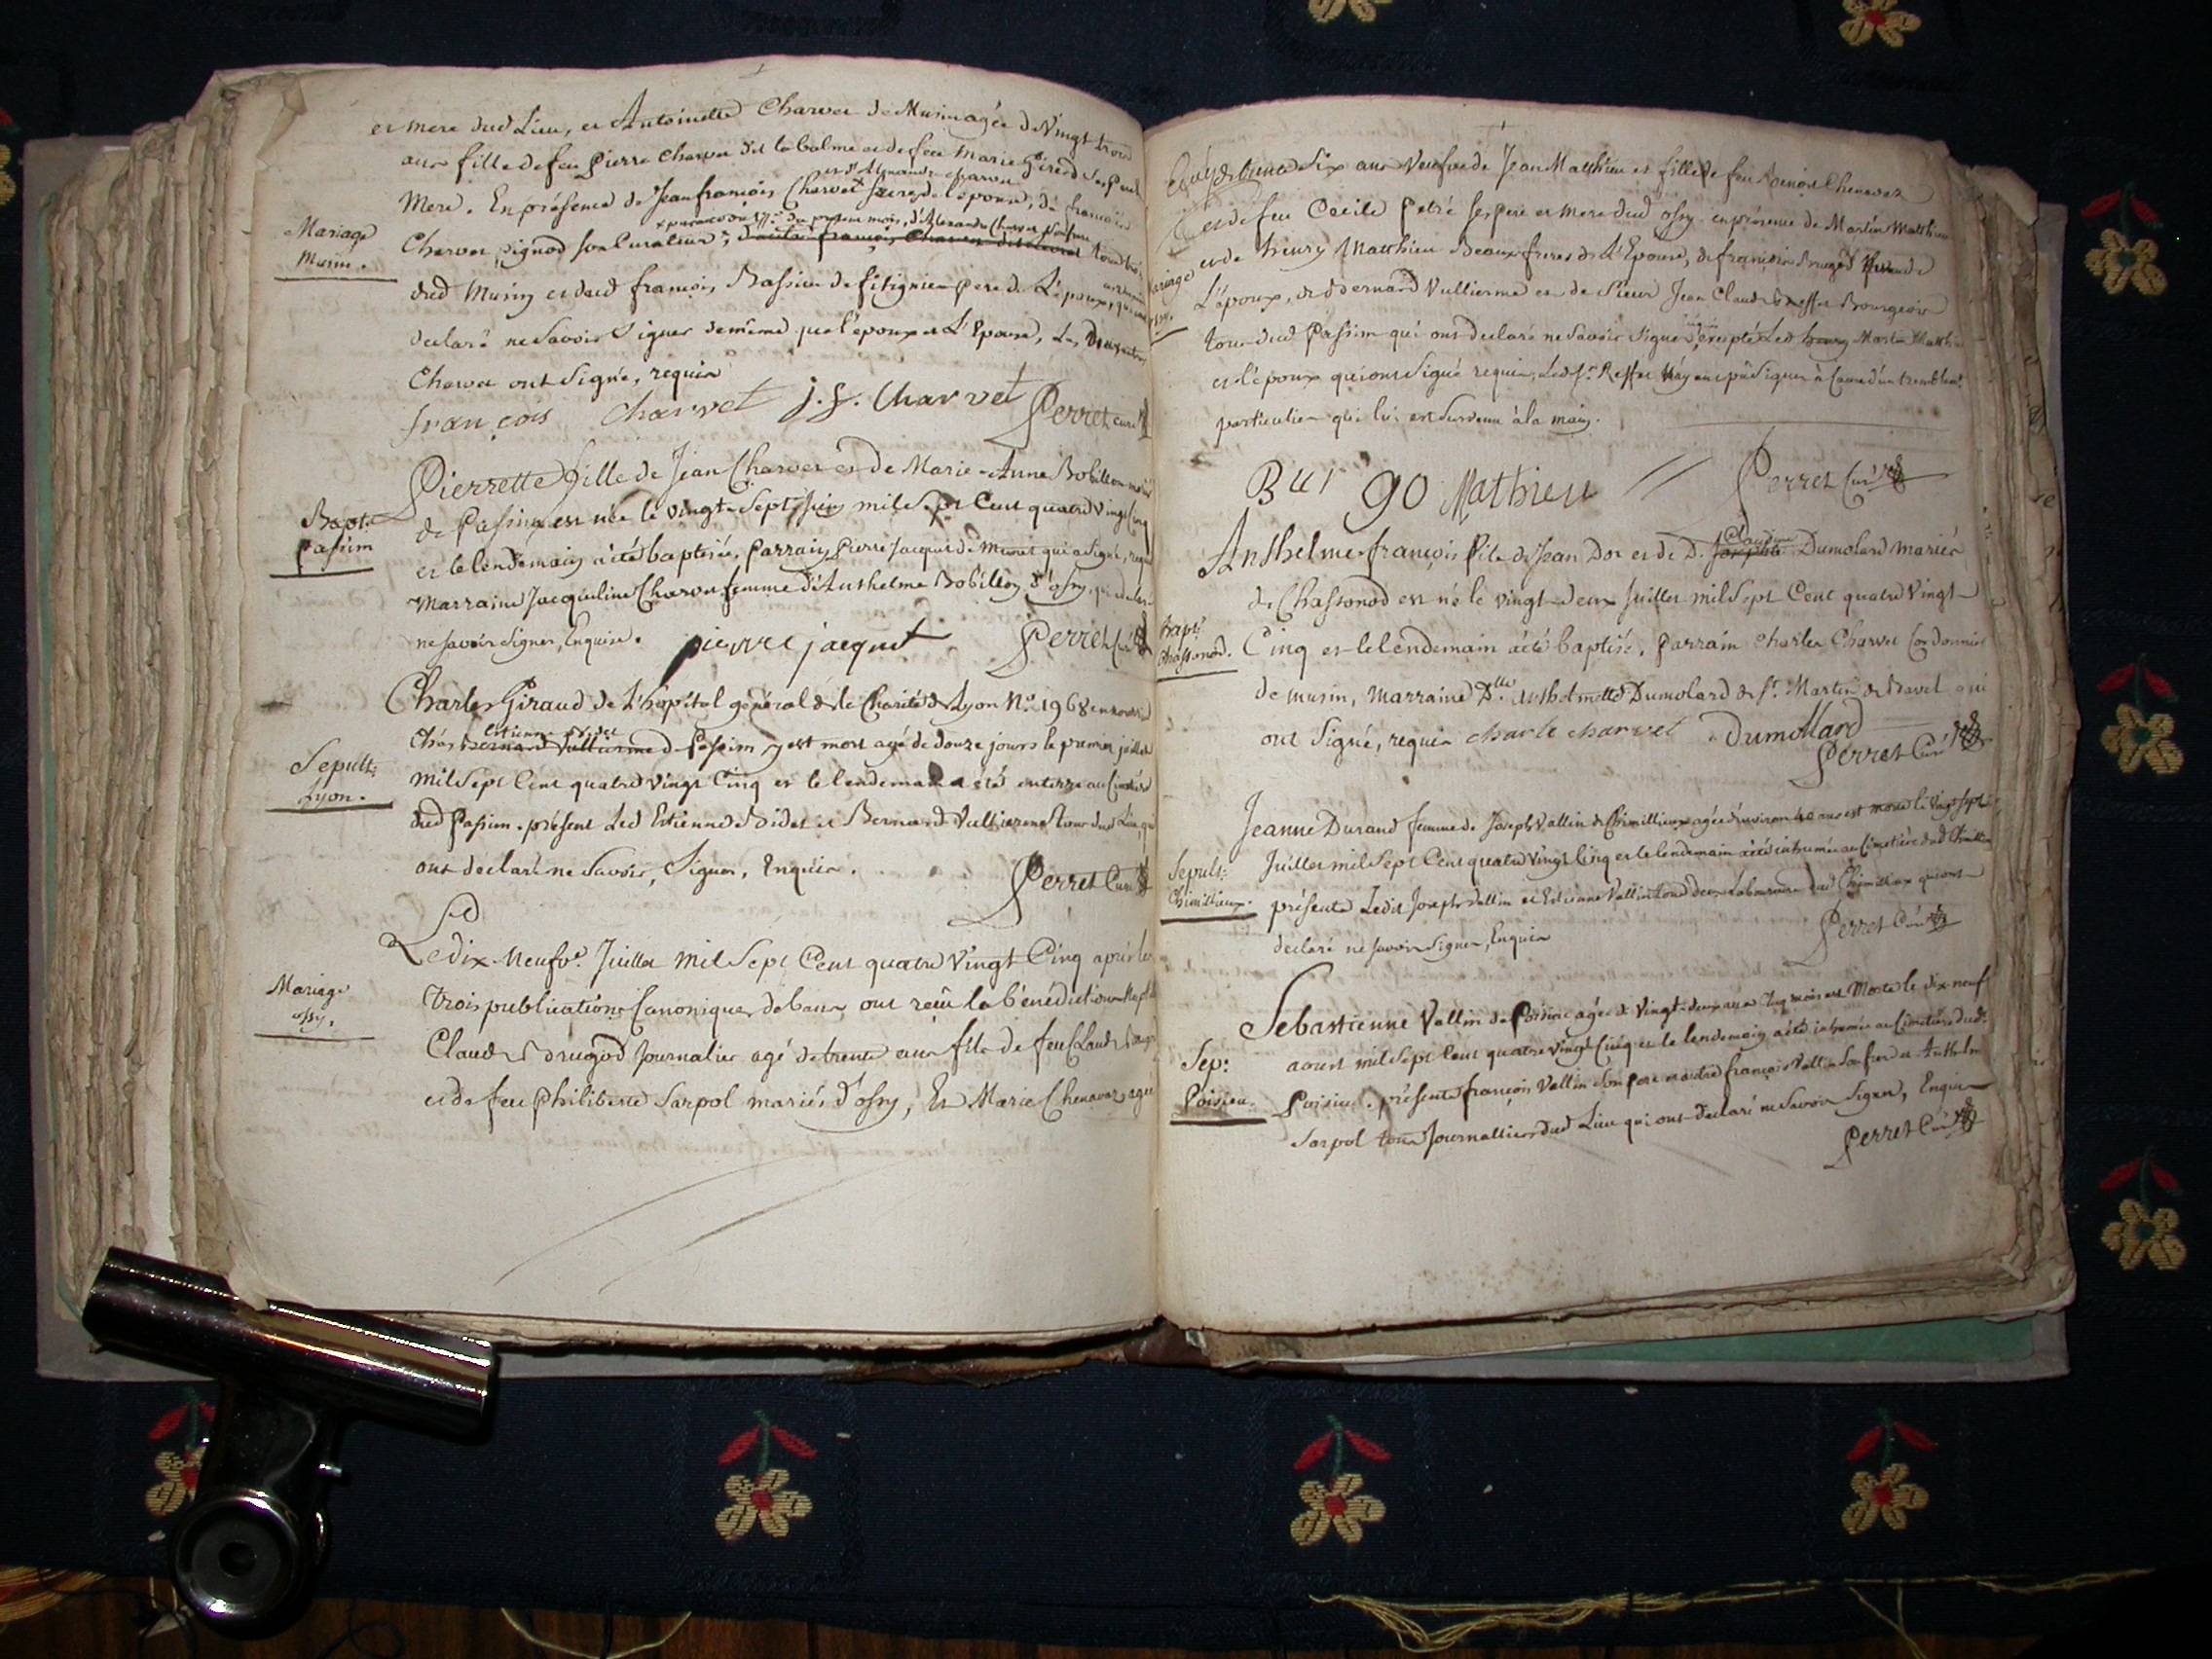 et mere dud Lieu, et Antoinette Charvet de Musin agée de Vingt trois
ans fille de feu Pierre Charvet dit la balme et de feu Marie Girerd ses Pere
et d'Alexandre charvet
Mere. En présence de Jean françois Charvet frere de l'épouse, de françois
du present mois, d'Alexandre Charvet
Mariage
Musin.
Charvet Pignod son Curateur, d'autre françois Charvet tous
dud Musin et dud françois Bassieu de fitignieu pere de L'époux, qui
declaré ne Savoir Signer de même que l'époux et L'Epouse, Les Deux autres
Charvet ont Signé, requis
françois charvet j. f. Charvet Perret curé
Pierrette fille de Jean Charvet et de Marie-Anne Bobillon mariés
Bapt:
Passim
de Passim est née le vingt-Sept juin mil Sept Cent quatre Vingt Cinq
et le lendemain a été baptisée, Parrain Pierre Jacquet de Munet qui a Signé, requis
Marraine Jacqueline Charvet femme d'Anthelme Bobillon d'ossy, qui a declaré
ne Savoir Signer, Enquise. pierre jacquet Perret Curé
Charles Giraud de L'hôpital général de la Charité de Lyon N.o 1968 en nourrice
Etienne Bidet
Chés Bernard Vullierme de Passim y est mort agé de douze jours le premier juillet
Sepult:
Lyon.
mil Sept Cent quatre vingt Cinq et le lendemain a été enterré au Cimetière
dud Passim. présent Led Etienne Bidet et Bernard Vullierme tous dud Lieu qui
ont declaré ne Savoir Signer, Enquis.
Perret Curé
Le dix-Neuf Juillet Mil Sept Cent quatre Vingt Cinq après les
Mariage
ossy.
trois publications Canoniques de bans ont reçu la bénédiction Nuptiale
Claude Brugod Journalier agé de trente ans fils de feu Claude Brugod
et de feu Philiberte Sarpol mariés d'ossy, Et Marie Chenavaz agée
de trente Six ans Veufve de Jean Matthieu et fille de feu Benoit Chenavaz
et de feu Cecile Petré ses pere et mere dud ossy. en présence de Martin Matthieu
Mariage
et de henry Matthieu Beaux freres de L'Epouse, de françois Brugod frere de
L'époux, de Bernard Vullierme et de Sieur Jean Claude Reffet Bourgeois
tous dud Passim qui ont declaré ne Savoir Signer, excepté Led henry Martin Matthieu
et l'époux qui ont Signé requis, Led Sr. Reffet n'ayant pû Signer à Cause d'un tremblemt.
particulier qui lui est Survenu à la main.
Bur go Mathieu Perret Curé
Claudine
Anthelme-françois fils de Jean Dor et de D. Josephte Dumolard mariés
de Chassonod est né le vingt-deux Juillet mil Sept Cent quatre Vingt-
Bapt:
Chassonod.
Cinq et le lendemain a été baptisé, Parrain Charles Charvet Cordonnier
de musin, Marraine Dlle Anthelmette Dumolard de St. Martin de Bavel qui
ont Signé, requis charle charvet Dumollard
Perret Curé
Jeanne Durand femme de Joseph Vallin de Chimillieux agée d'environ 40 ans est morte le vingt sept
Sepult:
Chimillieux.
Juillet mil Sept Cent quatre Vingt Cinq et le lendemain a été inhumée au Cimetière dud Chimillieux
présents Ledit Joseph Vallin et Etienne Vallin tous deux Laboureurs dud Chimillieux qui ont
declaré ne Savoir Signer, Enquis
Perret Curé
Sebastienne Vallin de Poisieu agée de Vingt-deux ans Cinq mois est Morte le dix-neuf
Sep:
Poisieu.
aoust mil Sept Cent quatre vingt Cinq et le lendemain a été inhumée au Cimetière dud.
Poisieu. présents françois Vallin Son Pere et autre françois Vallin Son frere et Anthelme
Sarpol tous Journalliers dud Lieu qui ont declaré ne Savoir Signer, Enquis
Perret Curé